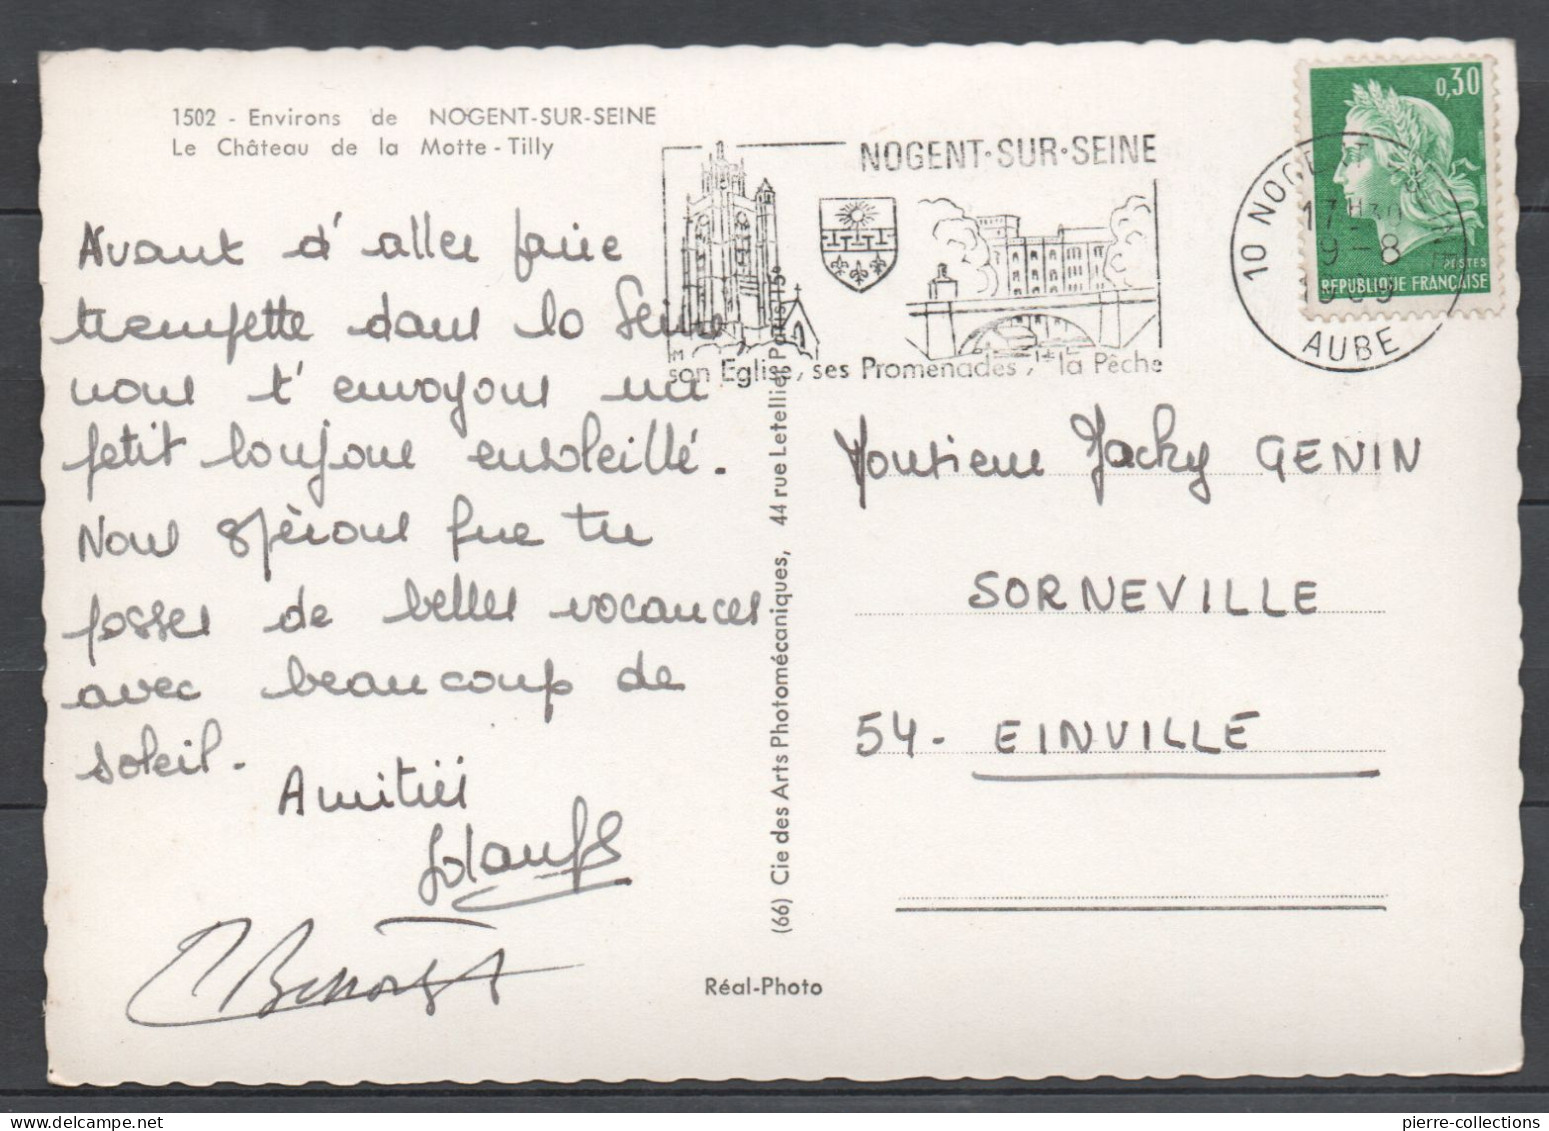 1502 - Environs de NOGENT-SUR-SEINE
Le Château de la Motte-Tilly
Avant d'aller faire
trempette dans la Seine
nous t'envoyons un
petit bonjour ensoleillé.
Nous espérons que tu
passes de belles vacances
avec beaucoup de
soleil.
Amitiés
NOGENT·SUR·SEINE
son Eglise, ses Promenades, la Pêche
10 NOGENT
17H30
9-8
1969
AUBE
0,30
POSTES
REPUBLIQUE FRANÇAISE
(66) Cie des Arts Photomécaniques, 44 rue Letellier Paris 15e
Réal-Photo
Monsieur Jacky GENIN
SORNEVILLE
54- EINVILLE
pierre-collections